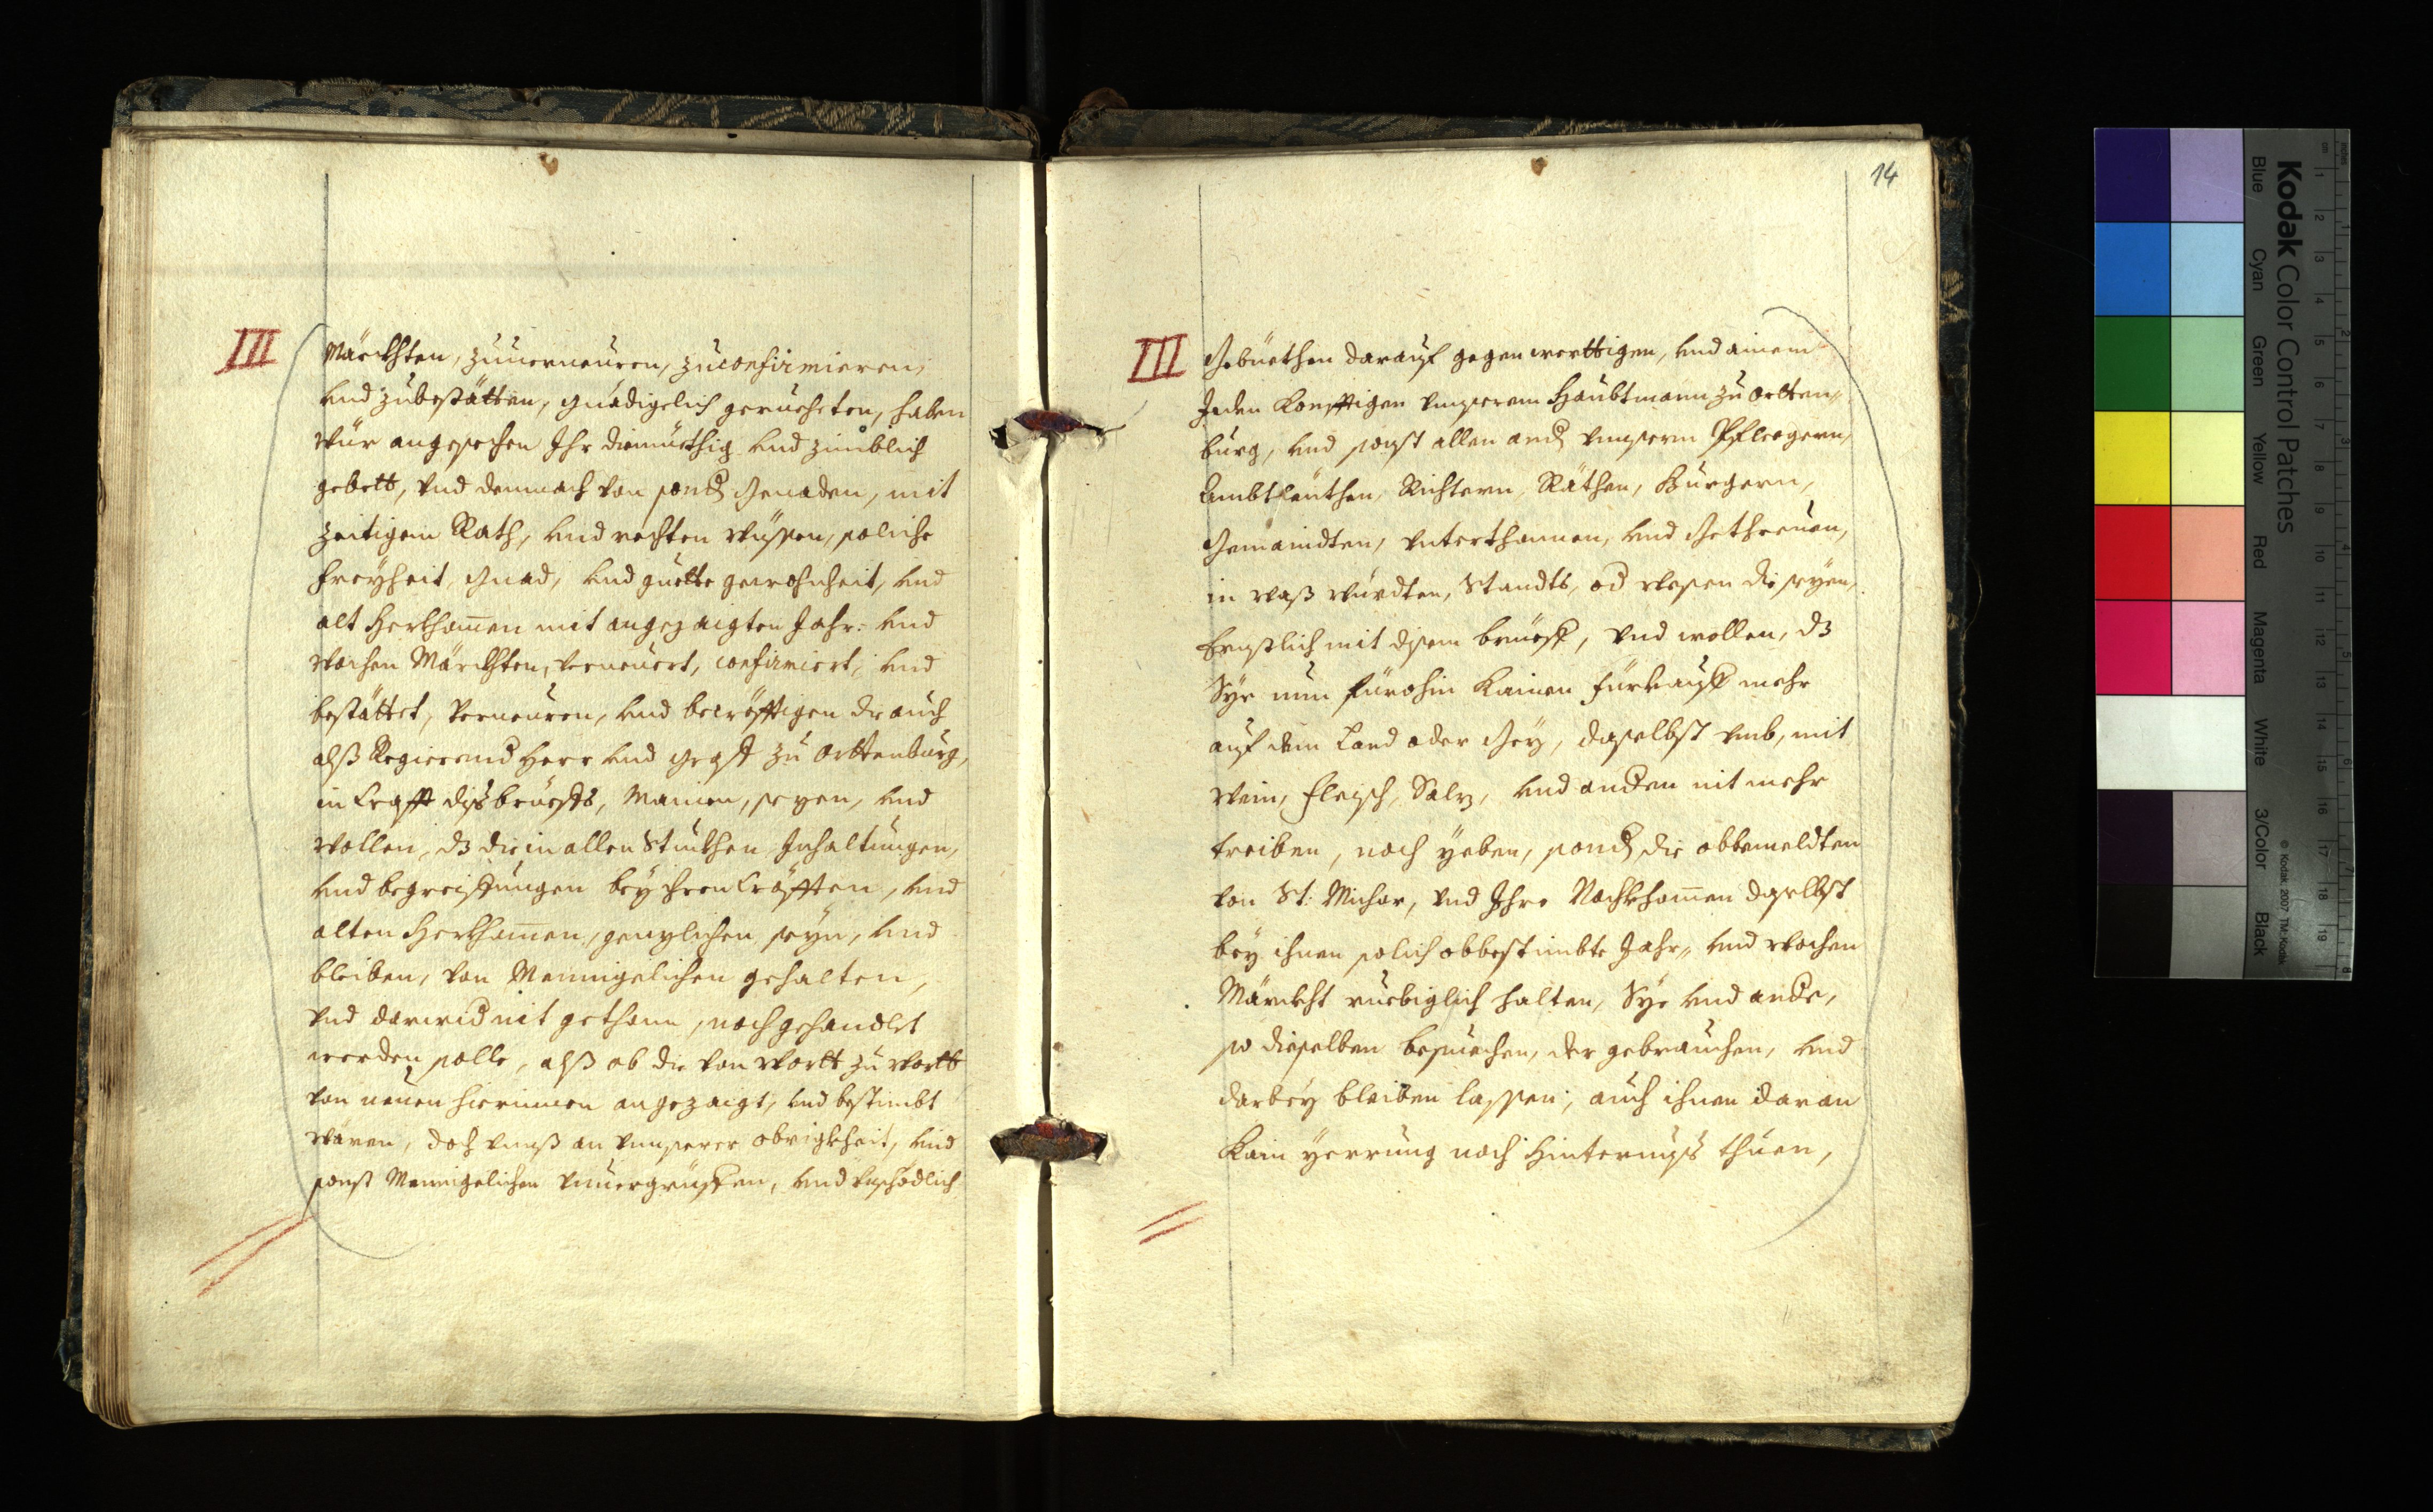 III
Märckhten, zuuerneuren, zuconfirmieren,
vnd zubestätten, gnädigelich geruecheten, haben
Wür angesechen Ihr diemüethig vnd zimblich
gebett, vnd demnach von sond(er) Genaden, mit
zeitigem Rath, vnd rechten Wüssen, soliche
freÿheit, Gnad, vnd guette gewohnheit, vnd
alt Herkhom̄en mit angezaigten Jahr: vnd
Wochen Märckhten, verneuert, confirmiert, vnd
bestättet, verneuren, vnd becräfftigen die auch
alß Regierend Herr vnd Graff zu Orttenburg,
in Crafft diß brüeffs, Mainen, sezen, vnd
Wollen, dz die in allen Stuckhen Inhaltungen,
vnd begreiffungen beÿ ihren Cräfften, vnd
alten Herkhom̄en, genzlichen seÿn, vnd
bleiben, von Mennigelichen gehalten,
vnd darwid(er) nit gethann, noch gehandlet
werden solle, alß ob die von Wortt zu Wortt
von neuen hierinnen angezaigt, vnd bestimbt
Wären, doch vnnß an vnnserer Obrigkheit, vnd
sonst Mennigelichen vnuergrüffen, vnd vnschödlich
14
III
Gebüethen darauf gegenwerttigen, vnd ainem
Jeden Konfftigen vnnserem Haubtmann zu Ortten„
burg, vnd sonst allen and(er) vnnsern Pfleegern,
Ambtleüthen, Richtern, Räthen, Burgern,
Gemaindten, vnterthannen, vnd Getreuen,
in Waß Würdten, Standts, od(er) Wesen die seÿen,
Ernstlich mit disem brüeff, vnd wollen, dz
Sÿe nun fürohin Kainen Fürkauff mehr
auf dem Land oder Geÿ, daselbst vmb, mit
Wein, Fleisch, Salz, vnd anderen nit mehr
treiben, noch yeben, sond(er) die obbemeldten
von St: Michor, vnd Ihre Nachkhom̄en daselbst
beÿ ihnen solich obbestimbte Jahr„ vnd Wochen
Märckht ruebiglich halten, Sÿe vnd andere,
so dieselben besuechen, der gebrauchen, vnd
darbeÿ bleiben lassen; auch ihnen daran
Kain yerrung noch Hinternuß thuen,
Kodak Color Control Patches
Blue
Cyan
Green
Yellow
Red
Magenta
White
3/Color
Black
© Kodak, 2007 TM: Kodak